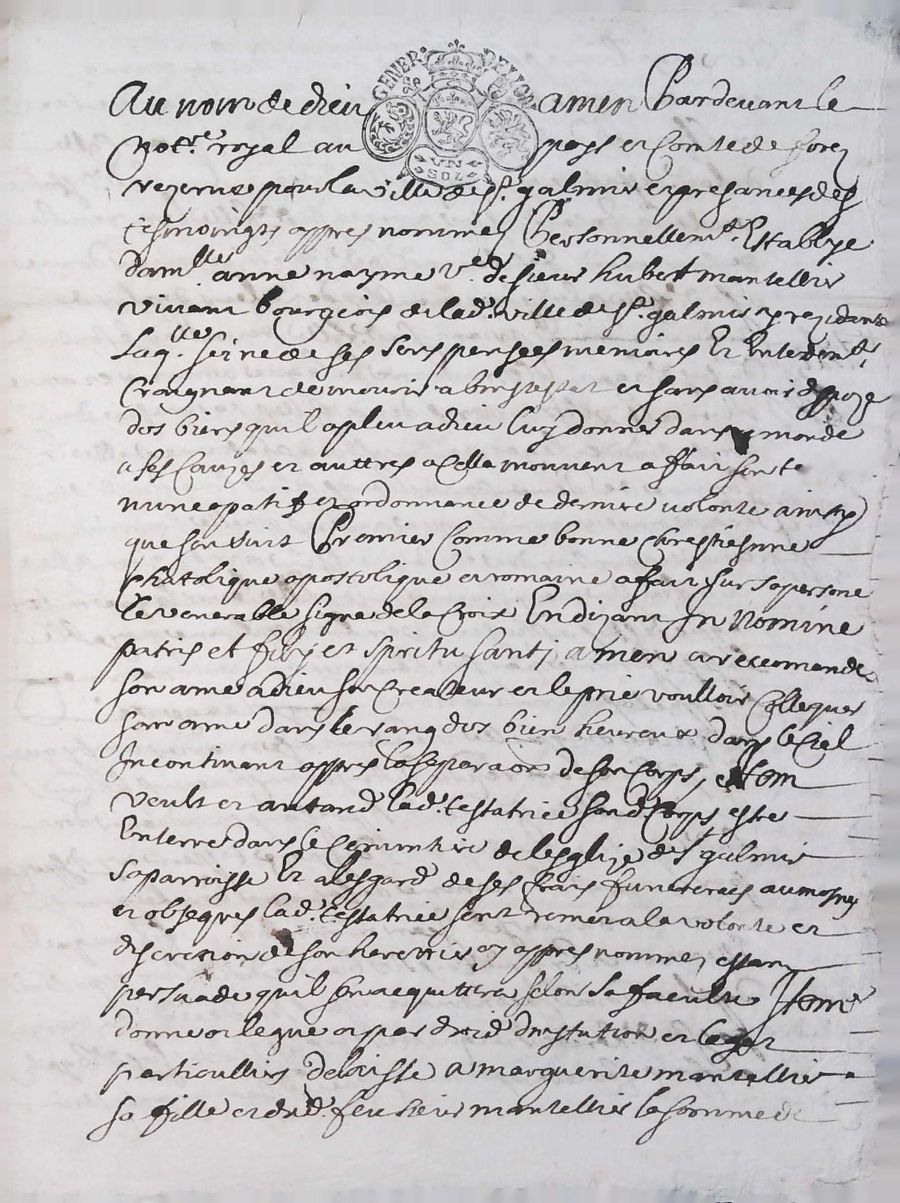 GENER. DE LION
UN SOL
Au nom de dieu amen Pardevant le
Nottre royal au pays et Comte de forez
rezerve pour la ville de St galmier et presances des
tesmoingts appres nommez Personnellemt Establye
damlle anne nayme ve de sieur hubert mantellier
vivant bourgeois de lad. ville de St galmier y rezidante
Laqlle seine de ses sens pensees memoires Et Entendemt
Craignant de mourir abintestat et sans avoir dispoze
des biens quil a pleu a dieu luy donner dans monde
a ses Cauzes et auttres a Celle mouvent a fait son te
nuncupatif et ordonnance de dernire volonte ainsy
que sensuit Premier Comme bonne Chrestienne
Chatolique apostolique et romaine a fait sur sa persone
le venerable signe de la Croix En dizant In Nomine
patris et filij et spiritu santj amen a recomende
son ame a dieu son Createur et le prie voulloir Colloquer
son ame dans le rang des bien heureux dans le Ciel
Incontinant appres la separaon de son Corps, Item
veult et antand lad. testatrice sond Corps estre
Enterre dans le Cimmtire de lesglize de St galmier
sa parroisse Et a lesgard de ses frais funeraires aumosnes
et obseques lad. testatrice sent remet a la volonte et
discretion de son herettier cy appres nommez estant
persuade quil sen acquittera selon sa faculte Item
donne et legue et par droid dinstitution et legat
particullier delaisse a marguerite mantellier
sa fille et dud. feu sieur mantellier la somme de